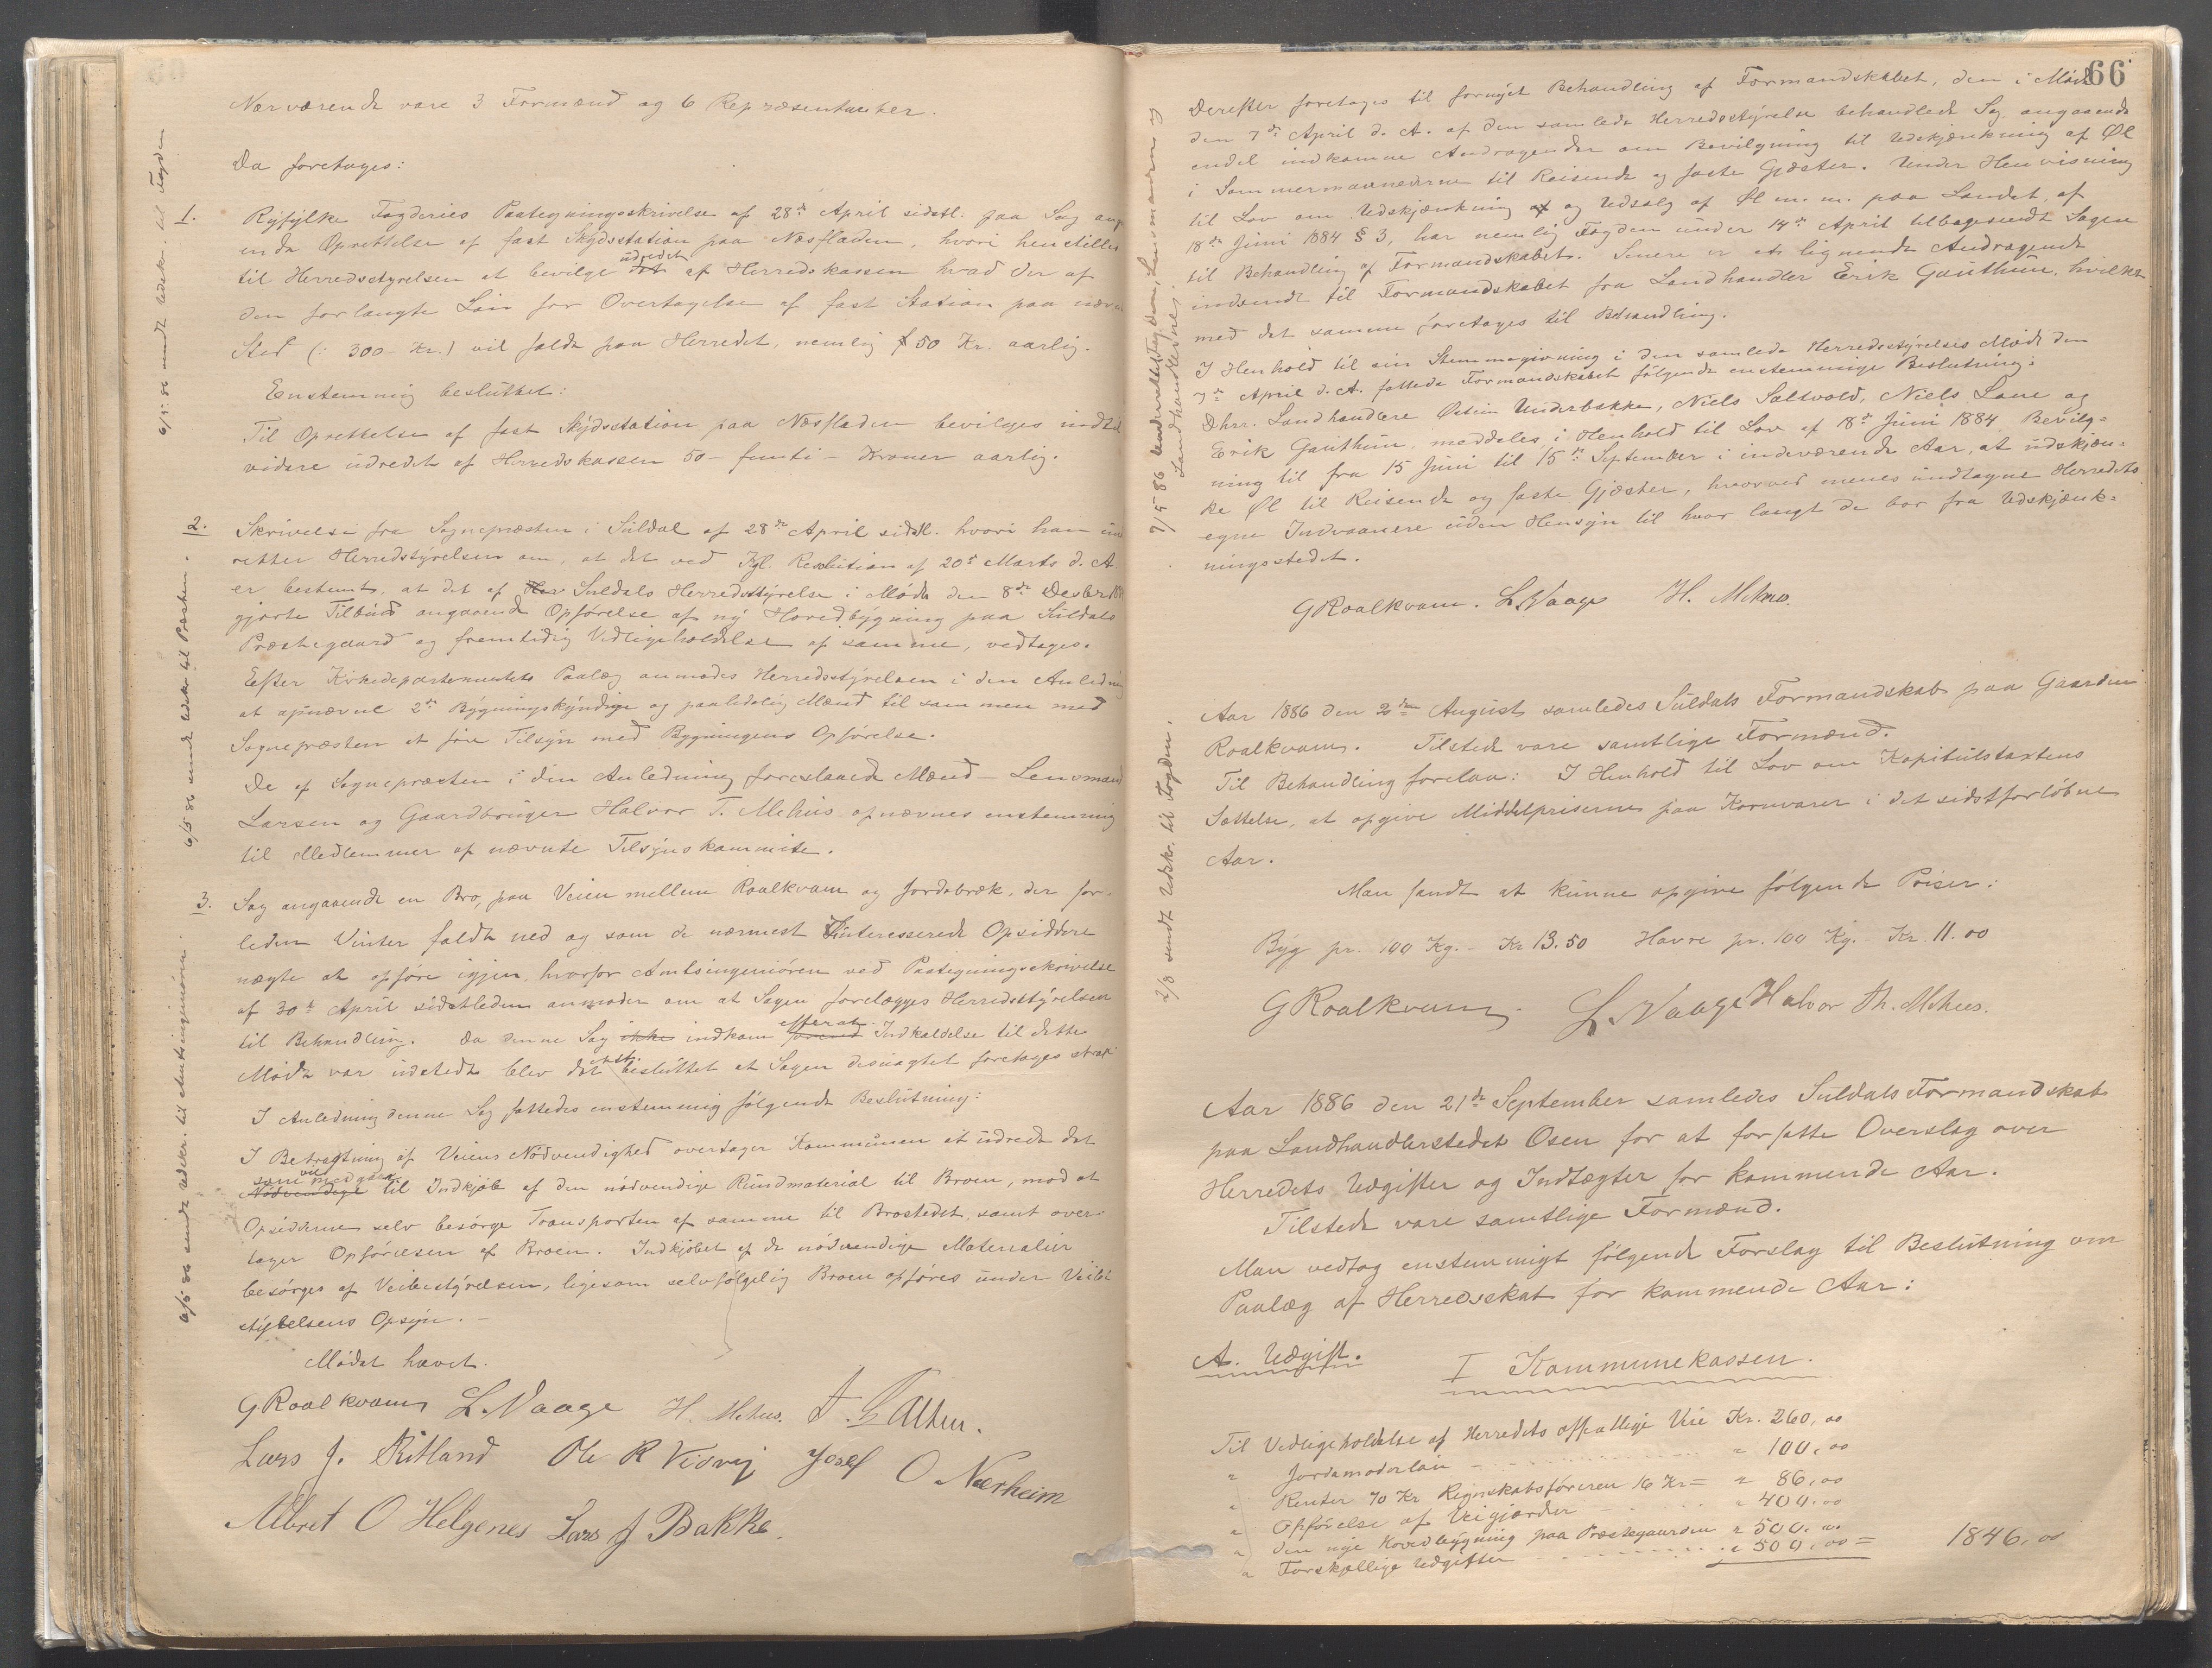 Nærværende vare 3 Formænd og 6 Repræsentanter.
Da foretages:
6/5 86 sendt Udskr. til Fogden
1. Ryfylke Fogderies Paategningsskrivelse af 28de April sidstl. paa Sag ang
ende Oprettelse af fast Skydsstation paa Næsfladen, hvori henstilles
til Herredsstyrelsen at bevilge udredet af Herredskassen hvad der af
den forlangte Løn for Overtagelse af fast Station paa nævn
Sted (: 300 Kr.) vil falde paa Herredet, nemlig 50 Kr. aarlig.
Enstemmig besluttet:
Til Oprettelse af fast Skydsstation paa Næsfladen bevilges indtil
videre udredet af Herredskassen 50 – femti – Kroner aarlig.
6/5 86 sendt Udskr. til Præsten.
2. Skrivelse fra Sognepræsten i Suldal af 28de April sidstl. hvori han und
retter Herredstyrelsen om, at det ved Kgl. Resolution af 20de Marts d. A.
er bestemt, at det af Suldals Herredsstyrelse i Møde den 8de Decbr 18
gjorte Tilbud angaaende Opførelse af ny Hovedbygning paa Suldals
Præstegaard og fremtidig Vedligeholdelse af samme, vedtages.
Efter Kirkedepartementets Paalæg anmodes Herredsstyrelsen i den Anledning
at opnævne 2de Bygningskyndige og paalidelig Mænd til sammen med
Sognepræsten at føre Tilsyn med Bygningens Opførelse.
De af Sognepræsten i den Anledning foreslaaede Mænd – Lensmand
Larsen og Gaardbruger Halvor T. Mehus opnævnes enstemmig
til Medlemmer af nævnte Tilsynskommite.
6/5 86 sendt Udskr. til Amtsingeniøren.
3. Sag angaaende en Bro, paa Veien mellem Roalkvam og Jordebræk, der for-
leden Vinter faldt ned og som de nærmest interesserede Opsiddere
nægte at opføre igjen, hvorfor Amtsingeniøren ved Paategningsskrivelse
af 30te April sidstleden anmoder om at Sagen forelægges Herredsstyrelsen
til Behandling. Da denne Sag ikke indkom efterat Indkaldelse til dette
Møde var udstedt blev det enst. besluttet at Sagen desuagtet foretages strax
I Anledning denne Sag fattedes enstemmig følgende Beslutning:
I Betragtning af Veiens Nødvendighed overtager Kommunen at udrede det
Nødvendige som vil medgaa til Indkjøb af den nødvendige Rundmaterial til Broen, mod at
Opsidderne selv besørge Transporten af samme til Brostedet, samt over-
tager Opførelsen af Broen. Indkjøbet af de nødvendige Materialier
besørges af Veibestyrelsen, ligesom selvfølgelig Broen opføres under Veibe
styrelsens Opsyn. –
Mødet hævet.
G Roalkvam L. Vaage H. Mehus.
Lars J. Ritland Ole R Vidvig Josef O Nærheim
Albret O Helgenes Lars J Bakke.
66
7/5 86 Lensmanden og Landhandlerne.
Derefter foretages til fornyet Behandling af Formandskabet, den i Møde
den 7de April d. A. af den samlede Herredsstyrelse behandlede Sag angaaende
endel indkomne Andragender om Bevilgning til Udskjænkning af Øl
i Sommermaanederne til Reisende og faste Gjæster. Under Henvisning
til Lov om Udskjænkning af og Udsalg af Øl m. m. paa Landet, af
18de Juni 1884 § 3, har nemlig Fogden under 14de April tilbagesendt Sagen
til Behandling af Formandskabet. Senere er et lignende Andragende
indsendt til Formandskabet fra Landhandler Erik Gauthun, hvilket
med det samme foretages til Behandling.
I Henhold til sin Stemmegivning i den samlede Herredsstyrelses Møde den
7de April d. A. fattede Formandskabet følgende enstemmige Beslutning:
Dhrr. Landhandlere Østein Underbakke, Niels Saltvold, Niels Lane og
Erik Gauthun, meddeles i Henhold til Lov af 18de Juni 1884 Bevilg-
ning til fra 15 Juni til 15de September i indeværende Aar, at udskjæn-
ke Øl til Reisende og faste Gjæster, hvorved menes undtagne Herredets
egne Indvaanere uden Hensyn til hvor langt de bor fra Udskjænk-
ningsstedet.
G Roalkvam. L. Vaage H. Mehus.
2/8 sendt Udskr. til Fogden.
Aar 1886 den 2den August samledes Suldals Formandskab paa Gaarden
Roalkvam. Tilstede vare samtlige Formænd.
Til Behandling forelaa: I Henhold til Lov om Kapitelstaxtens
Sættelse, at opgive Middelpriserne paa Kornvarer i det sidstforløbne
Aar.
Man fandt at kunne opgive følgende Priser:
Byg pr. 100 Kg. – Kr 13.50 Havre pr. 100 Kg. – Kr. 11.00
G Roalkvam. L. Vaage Halvor Th. Mehus.
Aar 1886 den 21de September samledes Suldals Formandskab
paa Landhandlerstedet Osen for at forfatte Overslag over
Herredets Udgifter og Indtægter for kommende Aar.
Tilstede vare samtlige Formænd.
Man vedtog enstemmigt følgende Forslag til Beslutning om
Paalæg af Herredsskat for kommende Aar:
A. Udgift. I Kommunekassen.
Til Vedligeholdelse af Herredets offentlige Veie Kr. 260,00
" Jordemoderløn " 100,00
" Renter 70 Kr Regnskabsføreren 16 Kr = " 86,00
" Opførelse af Veigjærder " 400,00
" den nye Hovedbygning paa Præstegaarden " 500,00
" Forskjellige Udgifter " 500,00 = 1846,00